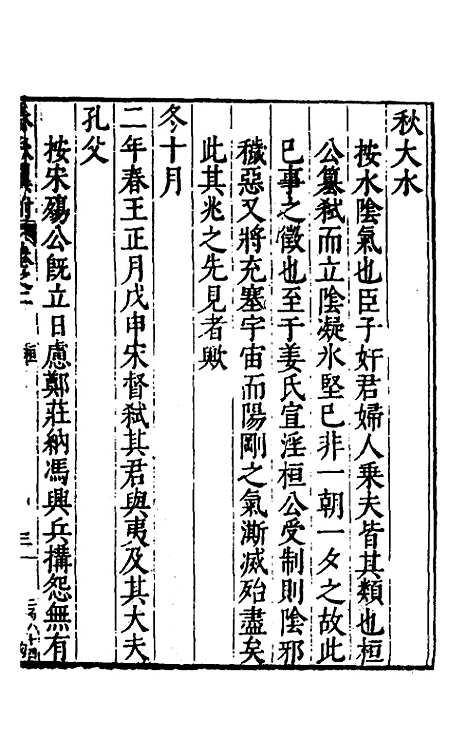 秋大水
按水陰氣也臣子奸君婦人乗夫皆其類也桓
公簒弑而立陰凝氷堅已非一朝一夕之故此
已事之徵也至于姜氏宣淫桓公受制則陰邪
穢惡又將充塞宇宙而陽剛之氣澌滅殆盡矣
此其兆之先見者歟
冬十月
二年春王正月戊申宋督弑其君與夷及其大夫
孔父
按宋殤公旣立日慮鄭莊納馮興兵搆怨無有
三